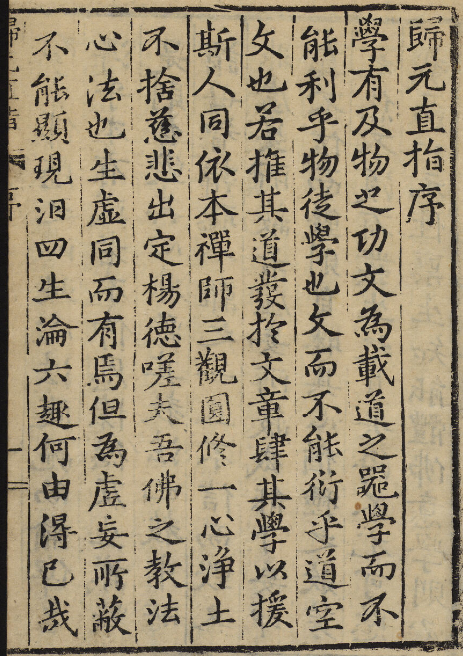 歸元直指序
學有及物之功文為載道之噐學而不
能利乎物徒學也文而不能衍乎道空
文也若推其道發於文章肆其學以援
斯人同依本禪師三觀圓修一心淨土
不捨慈悲出定楊德嗟夫吾佛之教法
心法也生虛同而有焉但為虛妄所蔽
不能顯現汨四生淪六趣何由得已哉